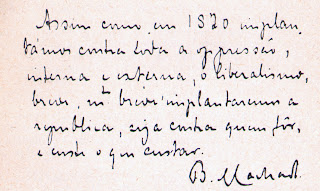 Assim como em 1820 implan-
támos contra toda a oppressão,
interna e externa, o liberalismo,
breve, mto breve implantaremos a
republica, seja contra quem fôr,
e custe o que custar.
B. Machado.